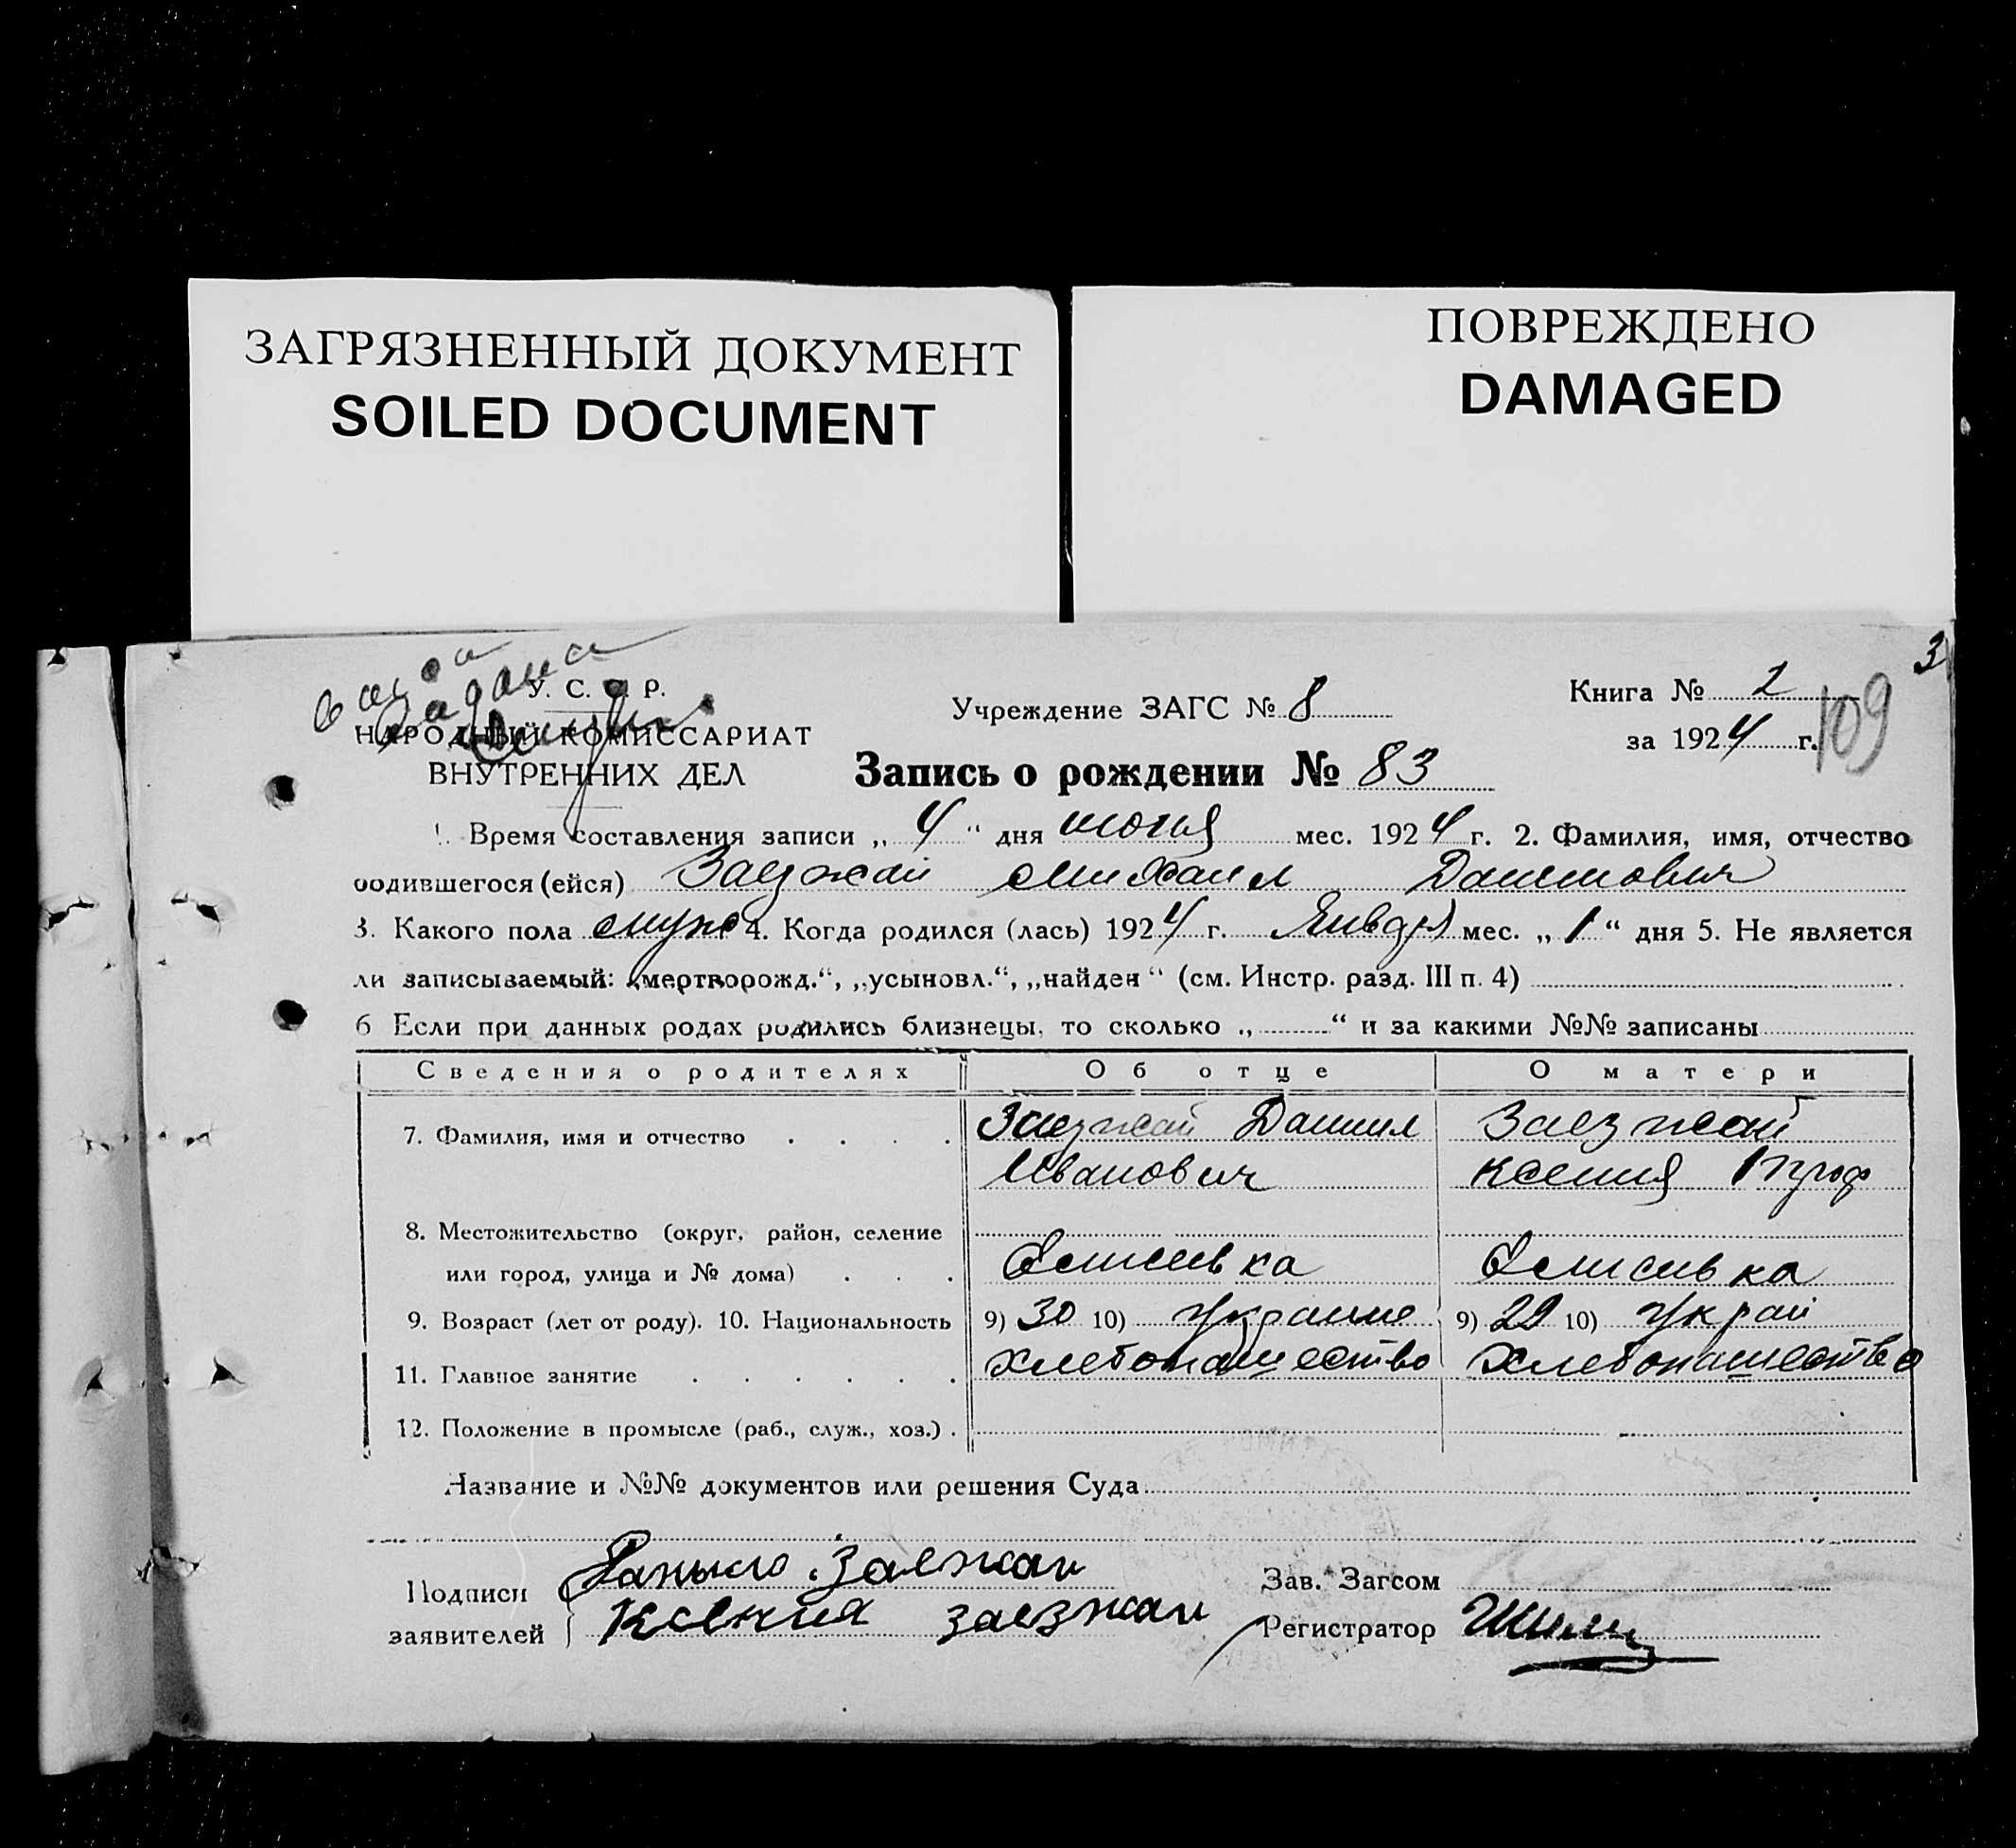 ЗАГРЯЗНЕННЫЙ ДОКУМЕНТ
SOILED DOCUMENT
ПОВРЕЖДЕНО
DAMAGED
3
У. С. С. Р.
НАРОДНЫЙ КОМИССАРИАТ
ВНУТРЕННИХ ДЕЛ
Учреждение ЗАГС № 8
Книга № 2
за 1924 г.
109
Запись о рождении № 83
1. Время составления записи „ 4 “ дня июня мес. 1924 г. 2. Фамилия, имя, отчество
родившегося (ейся) Заезжай Михаил Данилович
3. Какого пола муж 4. Когда родился (лась) 1924 г. Январ мес. „ 1 “ дня 5. Не является
ли записываемый: „мертворожд.“, „усыновл.“, „найден“ (см. Инстр. разд. III п. 4)
6 Если при данных родах родились близнецы, то сколько „ “ и за какими №№ записаны
Сведения о родителях Об отце О матери
7. Фамилия, имя и отчество Заезжай Даниил Заезжай
Иванович Ксения
8. Местожительство (округ, район, селение
или город, улица и № дома) Елисеевка Елисеевка
9. Возраст (лет от роду). 10. Национальность 9) 30 10) Украине 9) 29 10) Украй
11. Главное занятие Хлебопашество Хлебопашество
12. Положение в промысле (раб., служ., хоз.)
Название и №№ документов или решения Суда
Подписи
заявителей
Даныло Заезжай
Ксения Заезжай
Зав. Загсом
Регистратор